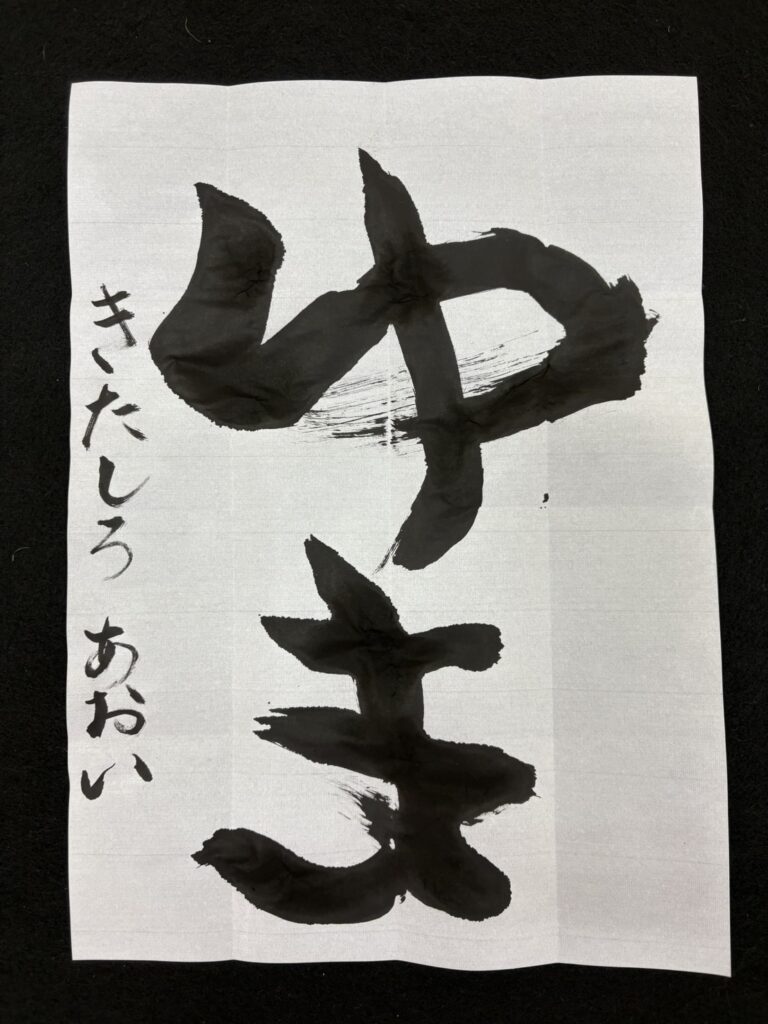 ゆま
きたしろ あおい